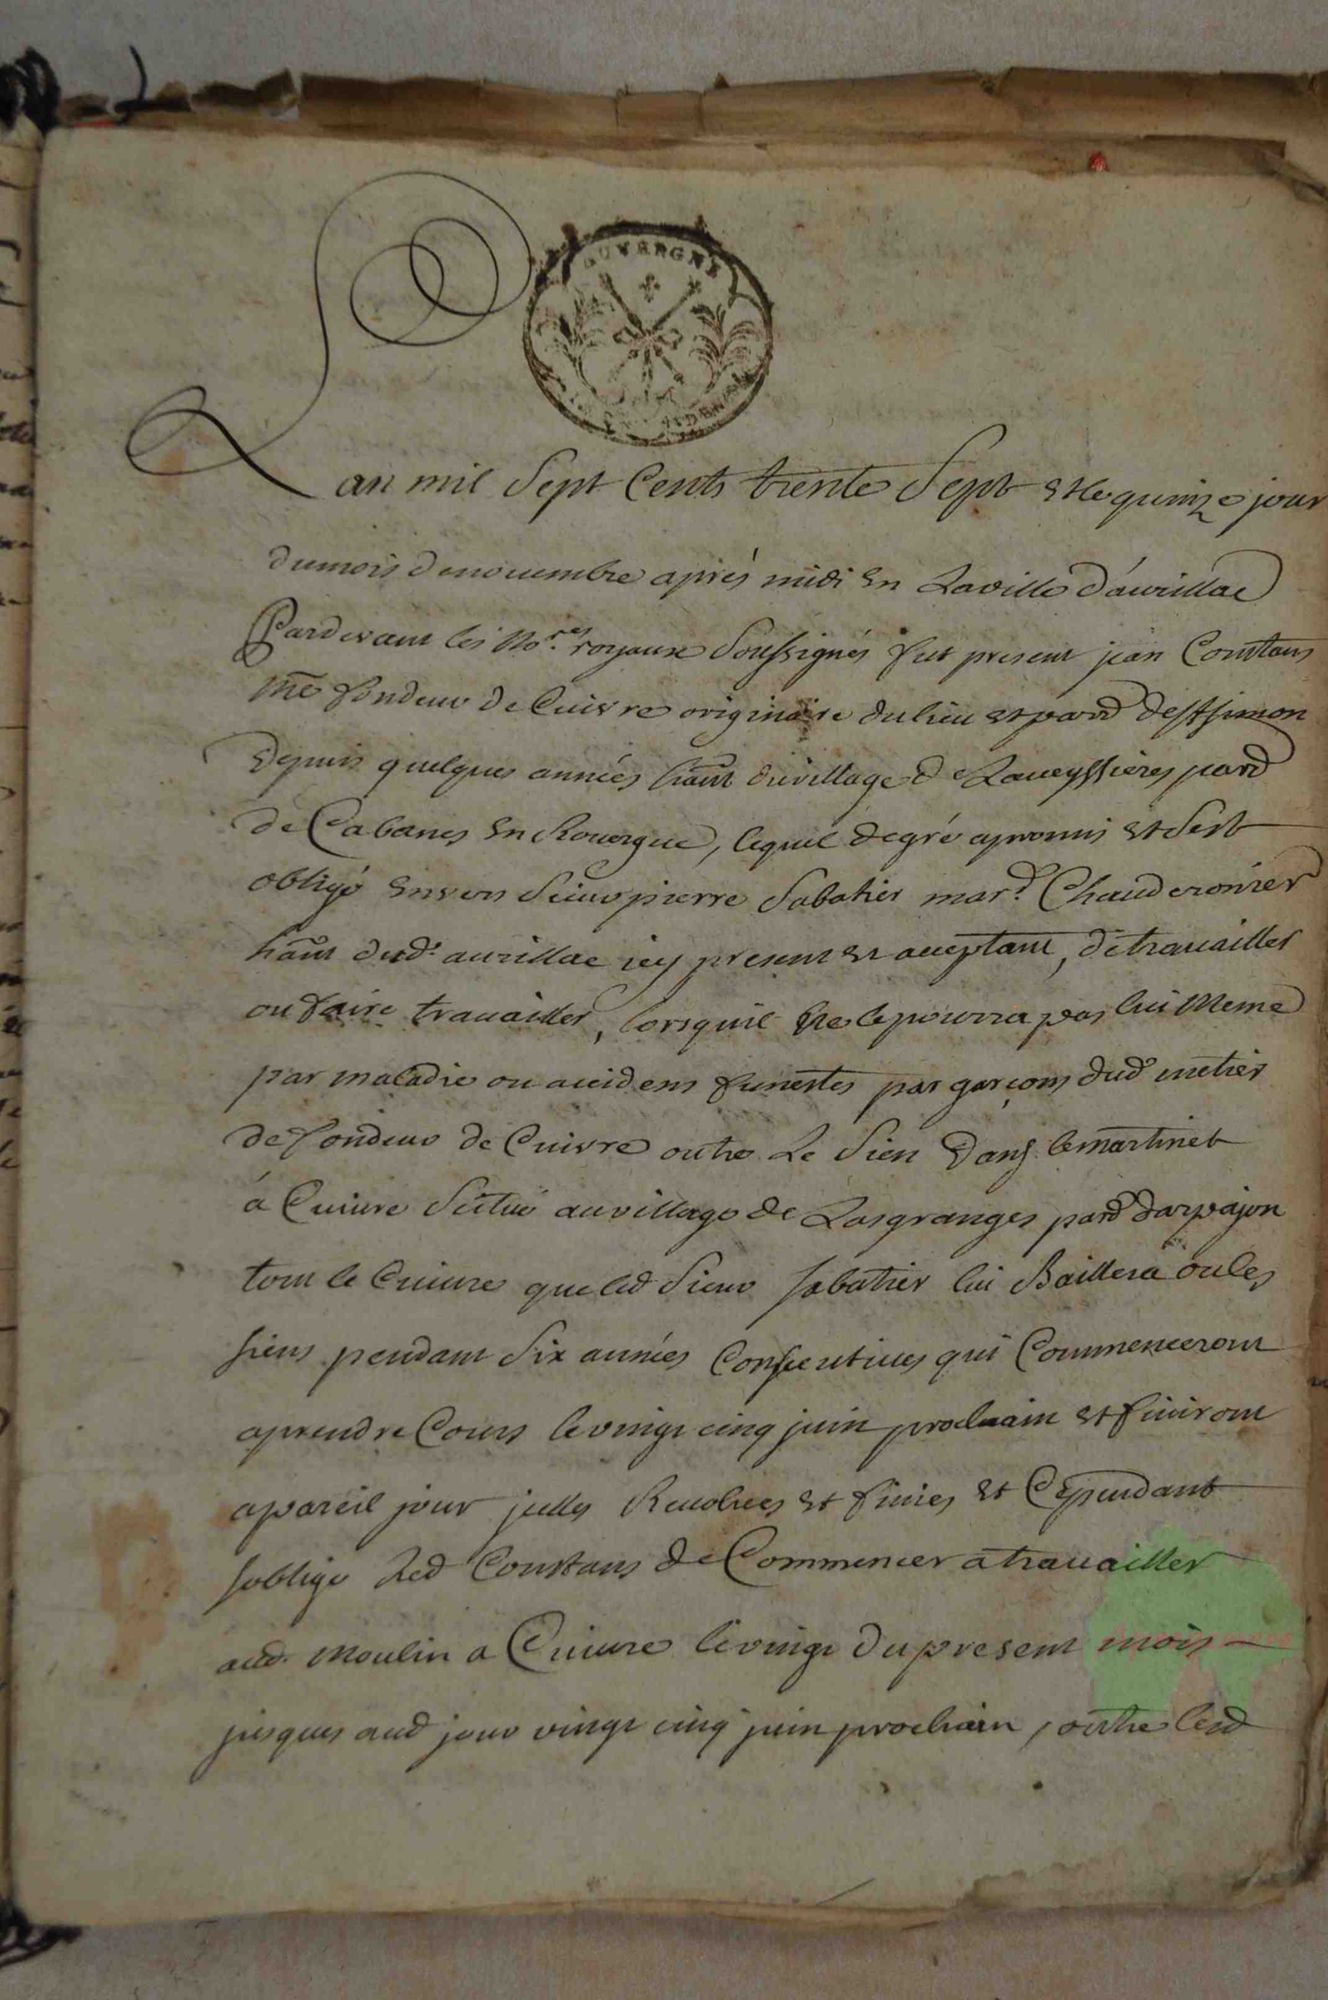 AUVERGNE
Lan mil Sept Cents trente Sept Et le quinze jour
du mois de novembre après midi En La ville d'aurillac
Pardevant les No.res royaux Soussignés fut present jean Constans
me fondeur de Cuivre originaire du lieu et parr de St simon
depuis quelques années ha̅nt du village de Laveyssieres parr
de Cabanes En Rouergue, lequel de gré a promis Et Sest
obligé Envers Sieur pierre Sabatier mar.d Chauderonier
ha̅nt dud. aurillac icy present Et acceptant, de travailler
ou faire travailler, lorsquil Ne le pourra pas lui Meme
par maladie ou accidens funestes par garçons dud metier
de fondeur de Cuivre outre Le Sien Dans le martinet
à Cuivre Scitué au village de Lasgranges parr darpajon
tout le Cuivre que led Sieur Sabatier lui Baillera ou les
siens pendant Six années Consecutives qui Commenceront
a prendre Cours le vingt cinq juin prochain Et finiront
a pareil jour jcelles Revolues Et finies Et Cependant
soblige Led Constans de Commencer a travailler
aud. moulin a Cuivre le vingt du present mois
jusques aud jour vingt cinq juin prochain, outre lesd